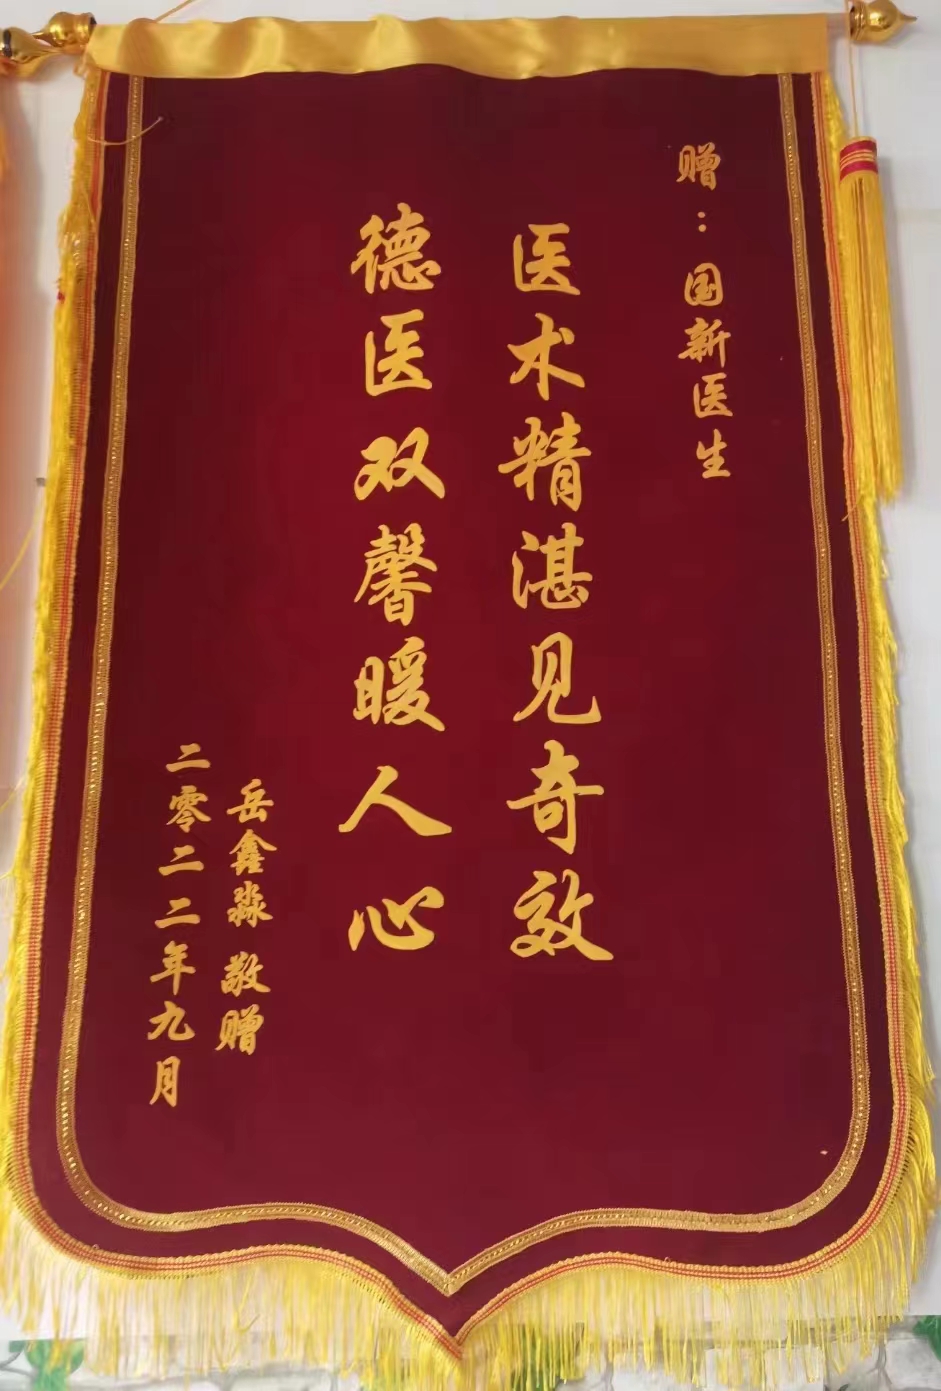 赠：国新医生
医术精湛见奇效
德医双馨暖人心
岳鑫淼 敬赠
二零二二年九月